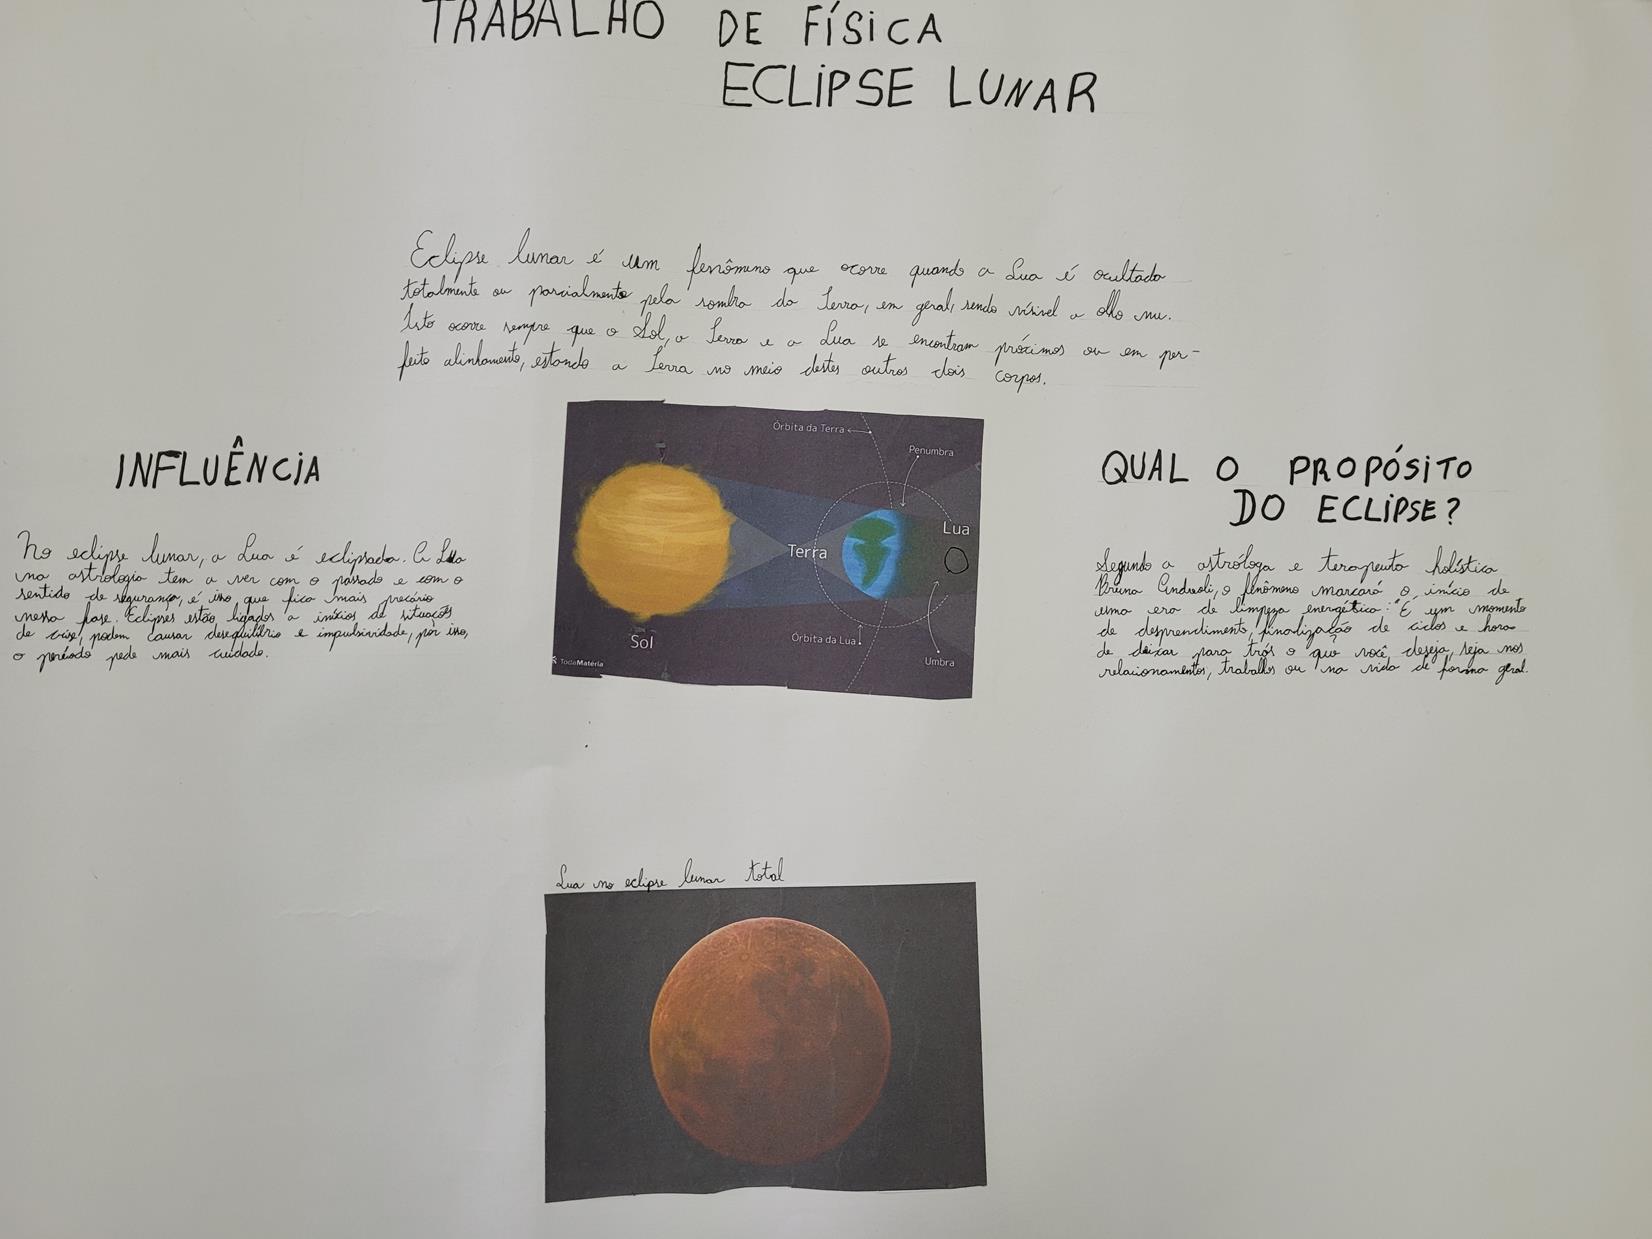 TRABALHO DE FÍSICA
ECLIPSE LUNAR
Eclipse lunar é um fenômeno que ocorre quando a Lua é ocultada
totalmente ou parcialmente pela sombra da Terra, em geral, sendo visível a olho nu.
Isto ocorre sempre que o Sol, a Terra e a Lua se encontram próximos ou em per-
feito alinhamento, estando a Terra no meio destes outros dois corpos.
INFLUÊNCIA
No eclipse lunar, a Lua é eclipsada. A Lua
na astrologia tem a ver com o passado e com o
sentido de segurança, é isso que fica mais precário
nessa fase. Eclipses estão ligados a inícios de situações
de crise, podem causar desequilíbrio e impulsividade, por isso,
o período pede mais cuidado.
Órbita da Terra
Penumbra
Lua
Terra
Órbita da Lua
Sol
Umbra
TodaMatéria
QUAL O PROPÓSITO
DO ECLIPSE?
Segundo a astróloga e terapeuta holística
Bruna, o fenômeno marcará o início de
uma era de limpeza energética: "É um momento
de desprendimento, finalização de ciclos e hora
de deixar para trás o que você deseja, seja nos
relacionamentos, trabalhos ou na vida de forma geral.
Lua no eclipse lunar total